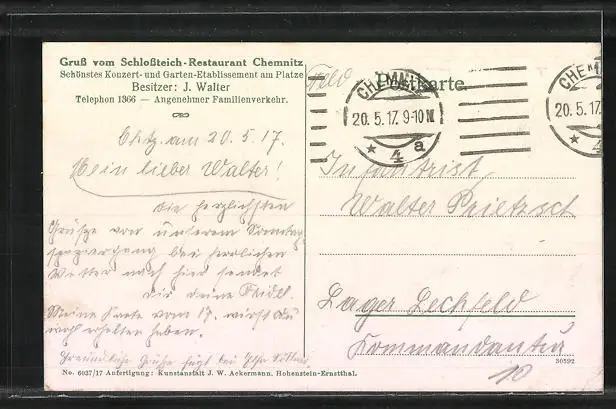 Gruß vom Schloßteich-Restaurant Chemnitz
Schönstes Konzert- und Garten-Etablissement am Platze
Besitzer: J. Walter
Telephon 1366 — Angenehmer Familienverkehr.
Feld Postkarte
CHEMNITZ
20.5.17. 9-10 V.
* 4 a
CHEMN
20.5.17.
* 4
Chtz. am 20.5.17.
Mein lieber Walter!
Die herzlichsten
Grüße von unserem Sonntag
spaziergang bei herrlichen
Wetter nach hier sendet
Dir deine Friedel.
Meine Karte vom 17. wirst du
wohl erhalten haben.
Freundliche Grüße fügt bei
Infantrist
Walter Prietzsch
Lager Lechfeld
Kommandantur
10
30592
No. 6037/17 Anfertigung: Kunstanstalt J. W. Ackermann, Hohenstein-Ernstthal.